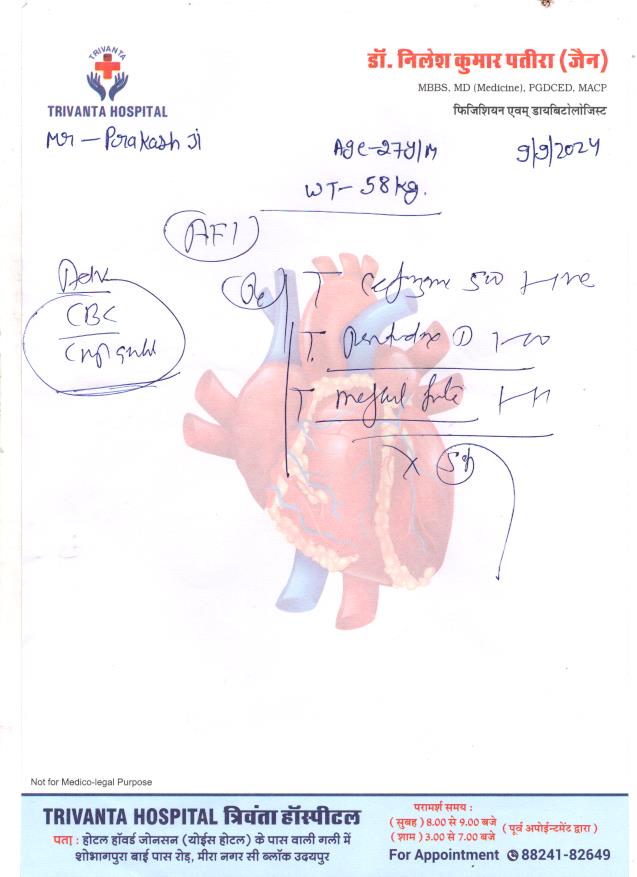 TRIVANTA
TRIVANTA HOSPITAL
डॉ. निलेश कुमार पतीरा (जैन)
MBBS, MD (Medicine), PGDCED, MACP
फिजिशियन एवम् डायबिटोलॉजिस्ट
Mr - Prakash Ji
Age - 27y/M
9/9/2024
WT - 58 kg.
AFI
Adv
CBC
T
T.
D
T
X 5d
Not for Medico-legal Purpose
TRIVANTA HOSPITAL त्रिवंता हॉस्पीटल
पता : होटल हॉवर्ड जोनसन (योईस होटल) के पास वाली गली में
शोभागपुरा बाई पास रोड़, मीरा नगर सी ब्लॉक उदयपुर
परामर्श समय :
( सुबह ) 8.00 से 9.00 बजे
( शाम ) 3.00 से 7.00 बजे
( पूर्व अपोईन्टमेंट द्वारा )
For Appointment 88241-82649